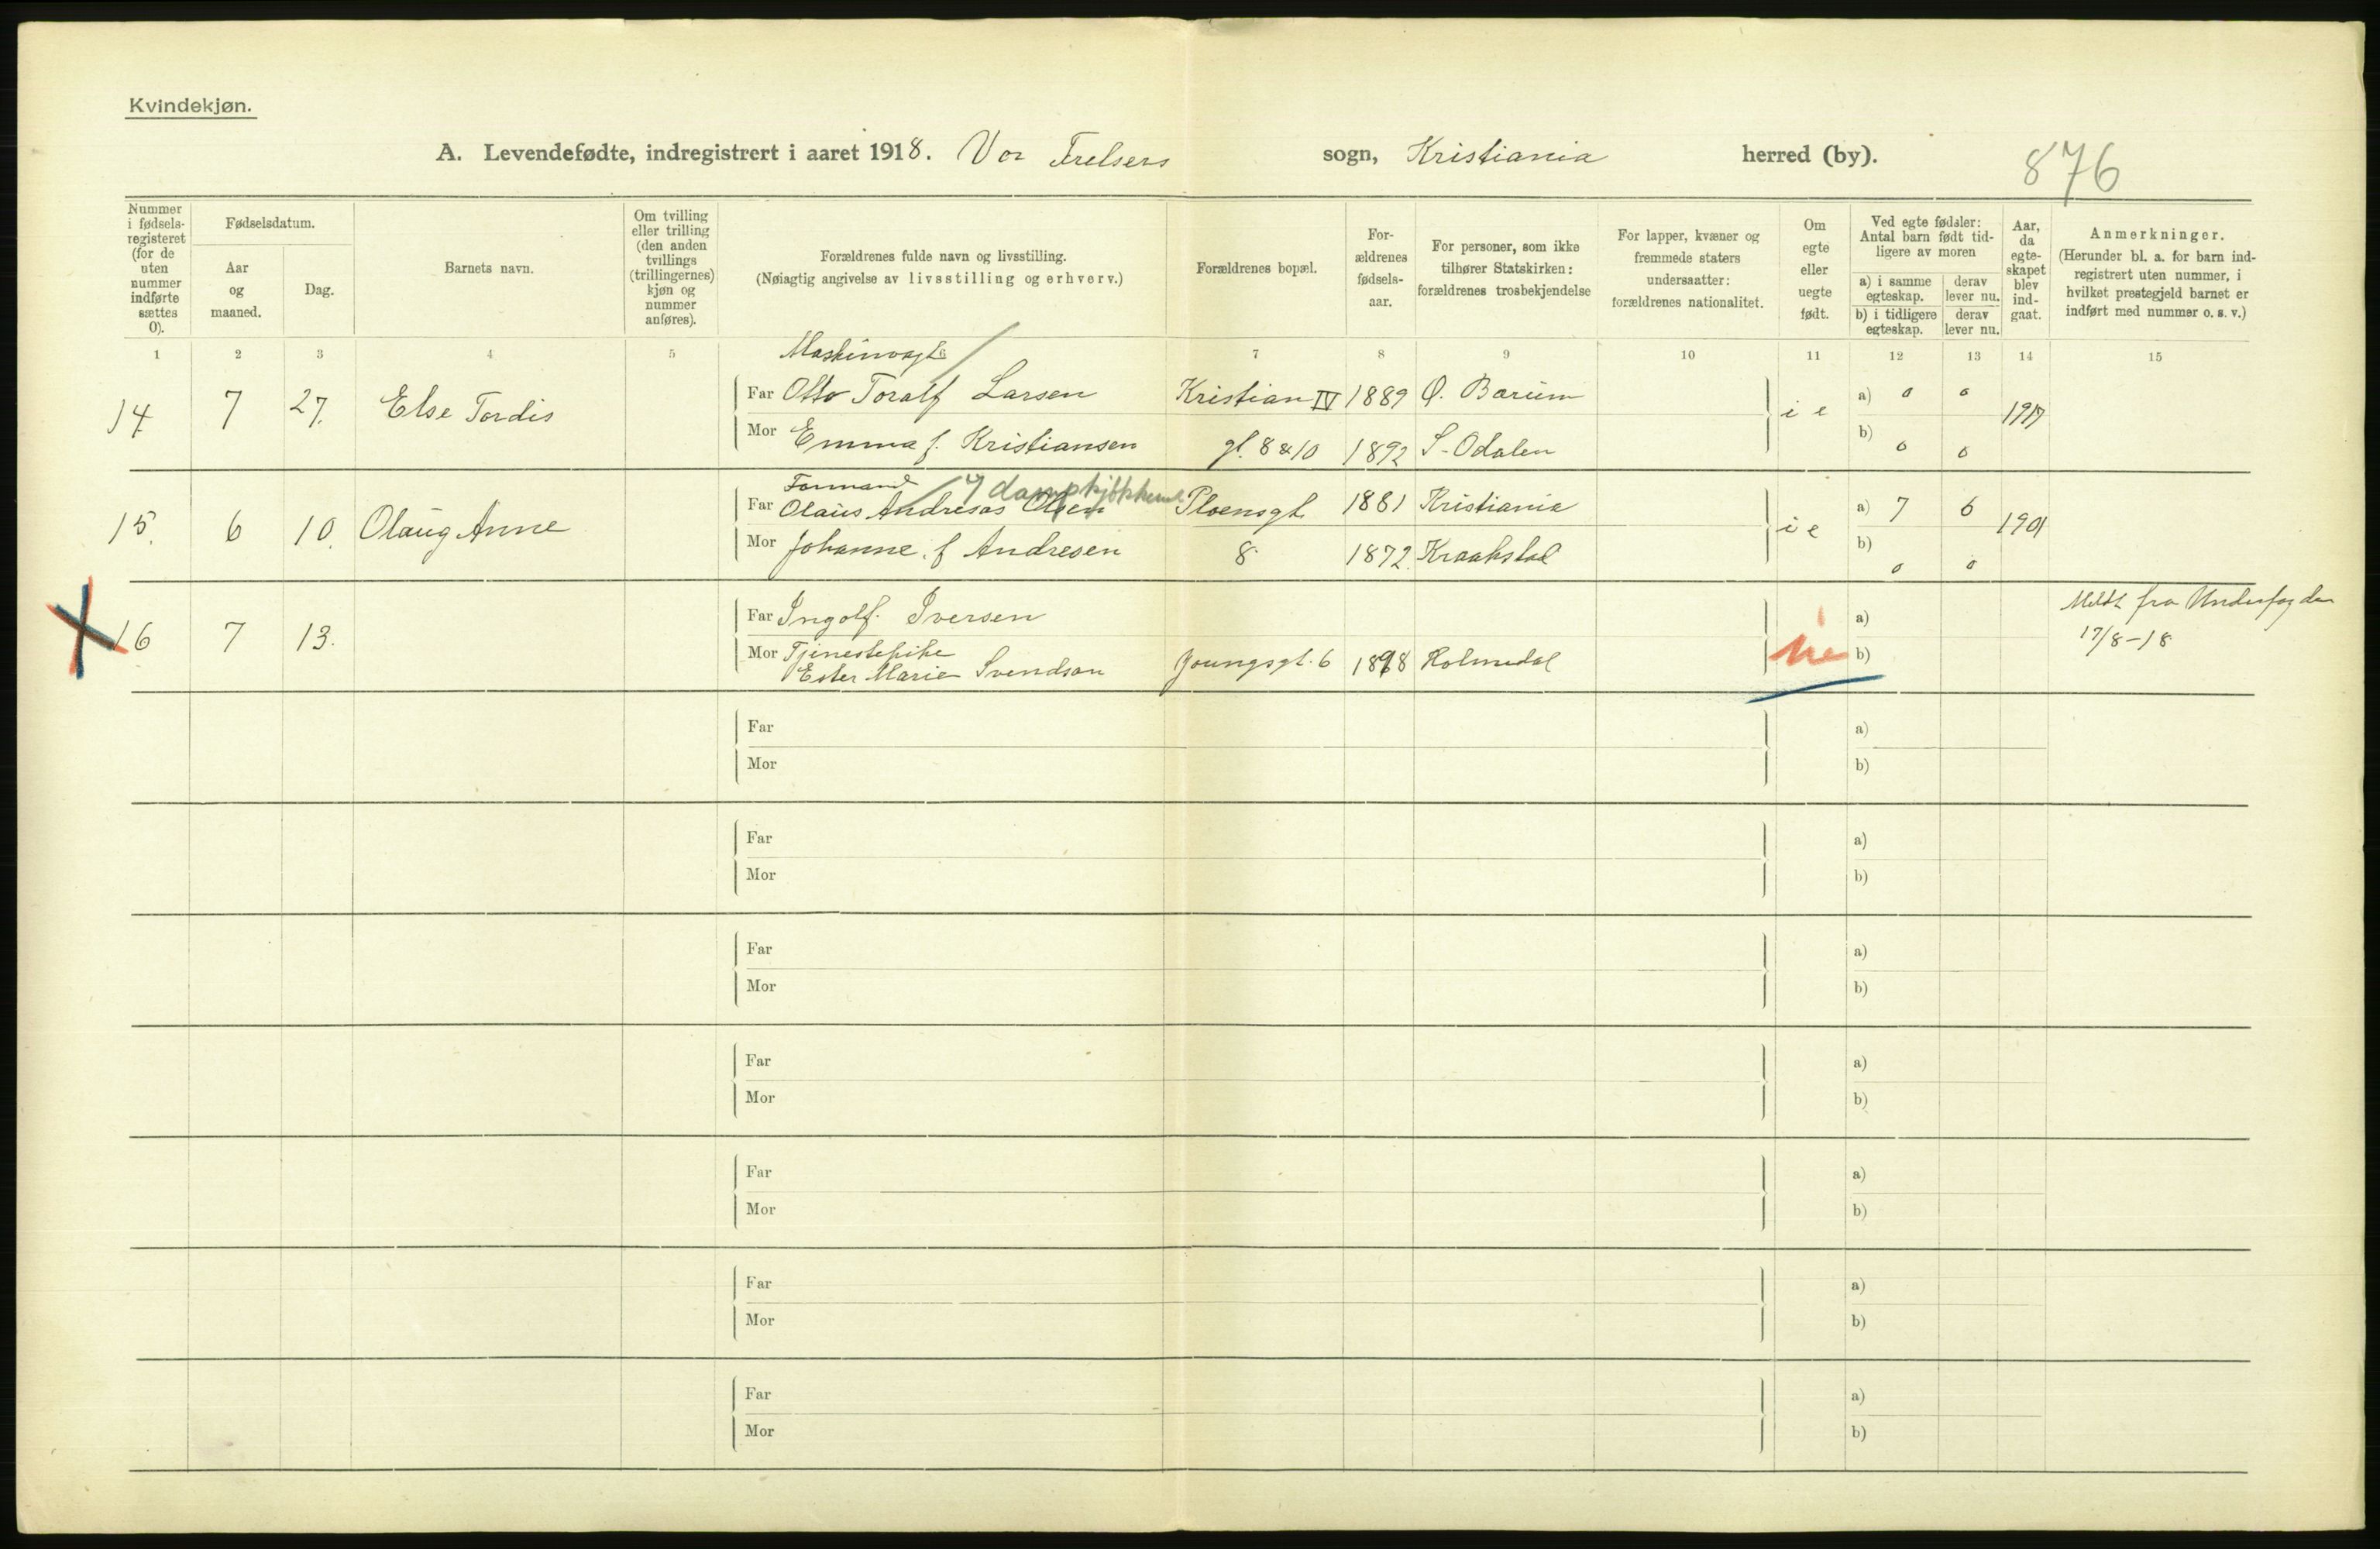 Kvindekjøn.
A. Levendefødte, indregistrert i aaret 1918. Vor Frelsers sogn, Kristiania herred (by).
876
Nummer i fødsels-registeret (for de uten nummer indførte sættes 0).
Fødselsdatum.
Aar og maaned.
Dag.
Barnets navn.
Om tvilling eller trilling (den anden tvillings (trillingernes) kjøn og nummer anføres).
Forældrenes fulde navn og livsstilling.
(Nøiagtig angivelse av livsstilling og erhverv.)
Forældrenes bopæl.
For-ældrenes fødsels-aar.
For personer, som ikke tilhører Statskirken: forældrenes trosbekjendelse
For lapper, kvæner og fremmede staters undersaatter: forældrenes nationalitet.
Om egte eller uegte født.
Ved egte fødsler: Antal barn født tid-ligere av moren
a) i samme egteskap.
derav lever nu.
b) i tidligere egteskap.
derav lever nu.
Aar, da egte-skapet blev ind-gaat.
Anmerkninger.
(Herunder bl. a. for barn ind-registrert uten nummer, i hvilket prestegjeld barnet er indført med nummer o. s. v.)
1 2 3 4 5 6 7 8 9 10 11 12 13 14 15
Maskinvagt
14 7 27. Else Tordis Far Otto Toralf Larsen Kristian IV 1889 Ø. Bærum i e a) 0 0 1917
Mor Emma f. Kristiansen gt. 8 & 10 1892 S-Odalen b) 0 0
Formand y dampkjøkkenet
15. 6 10. Olaug Anne Far Olaus Andreas Olsen Ploensgt. 1881 Kristiania i e a) 7 6 1901
Mor Johanne f Andresen 8. 1872. Kraakstad b) 0 0
X 16 7 13. Far Ingolf Iversen a) Meldt fra
17/8-18
Mor Tjenestepike
Ester Marie Svendsen Youngsgt. 6 1898 Holmedal b)
Far a)
Mor b)
Far a)
Mor b)
Far a)
Mor b)
Far a)
Mor b)
Far a)
Mor b)
Far a)
Mor b)
Far a)
Mor b)